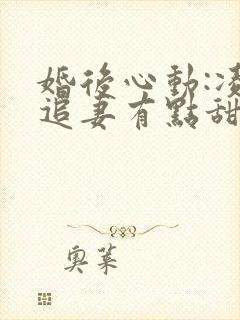 婚後心動:凌
追妻有點甜
奧萊